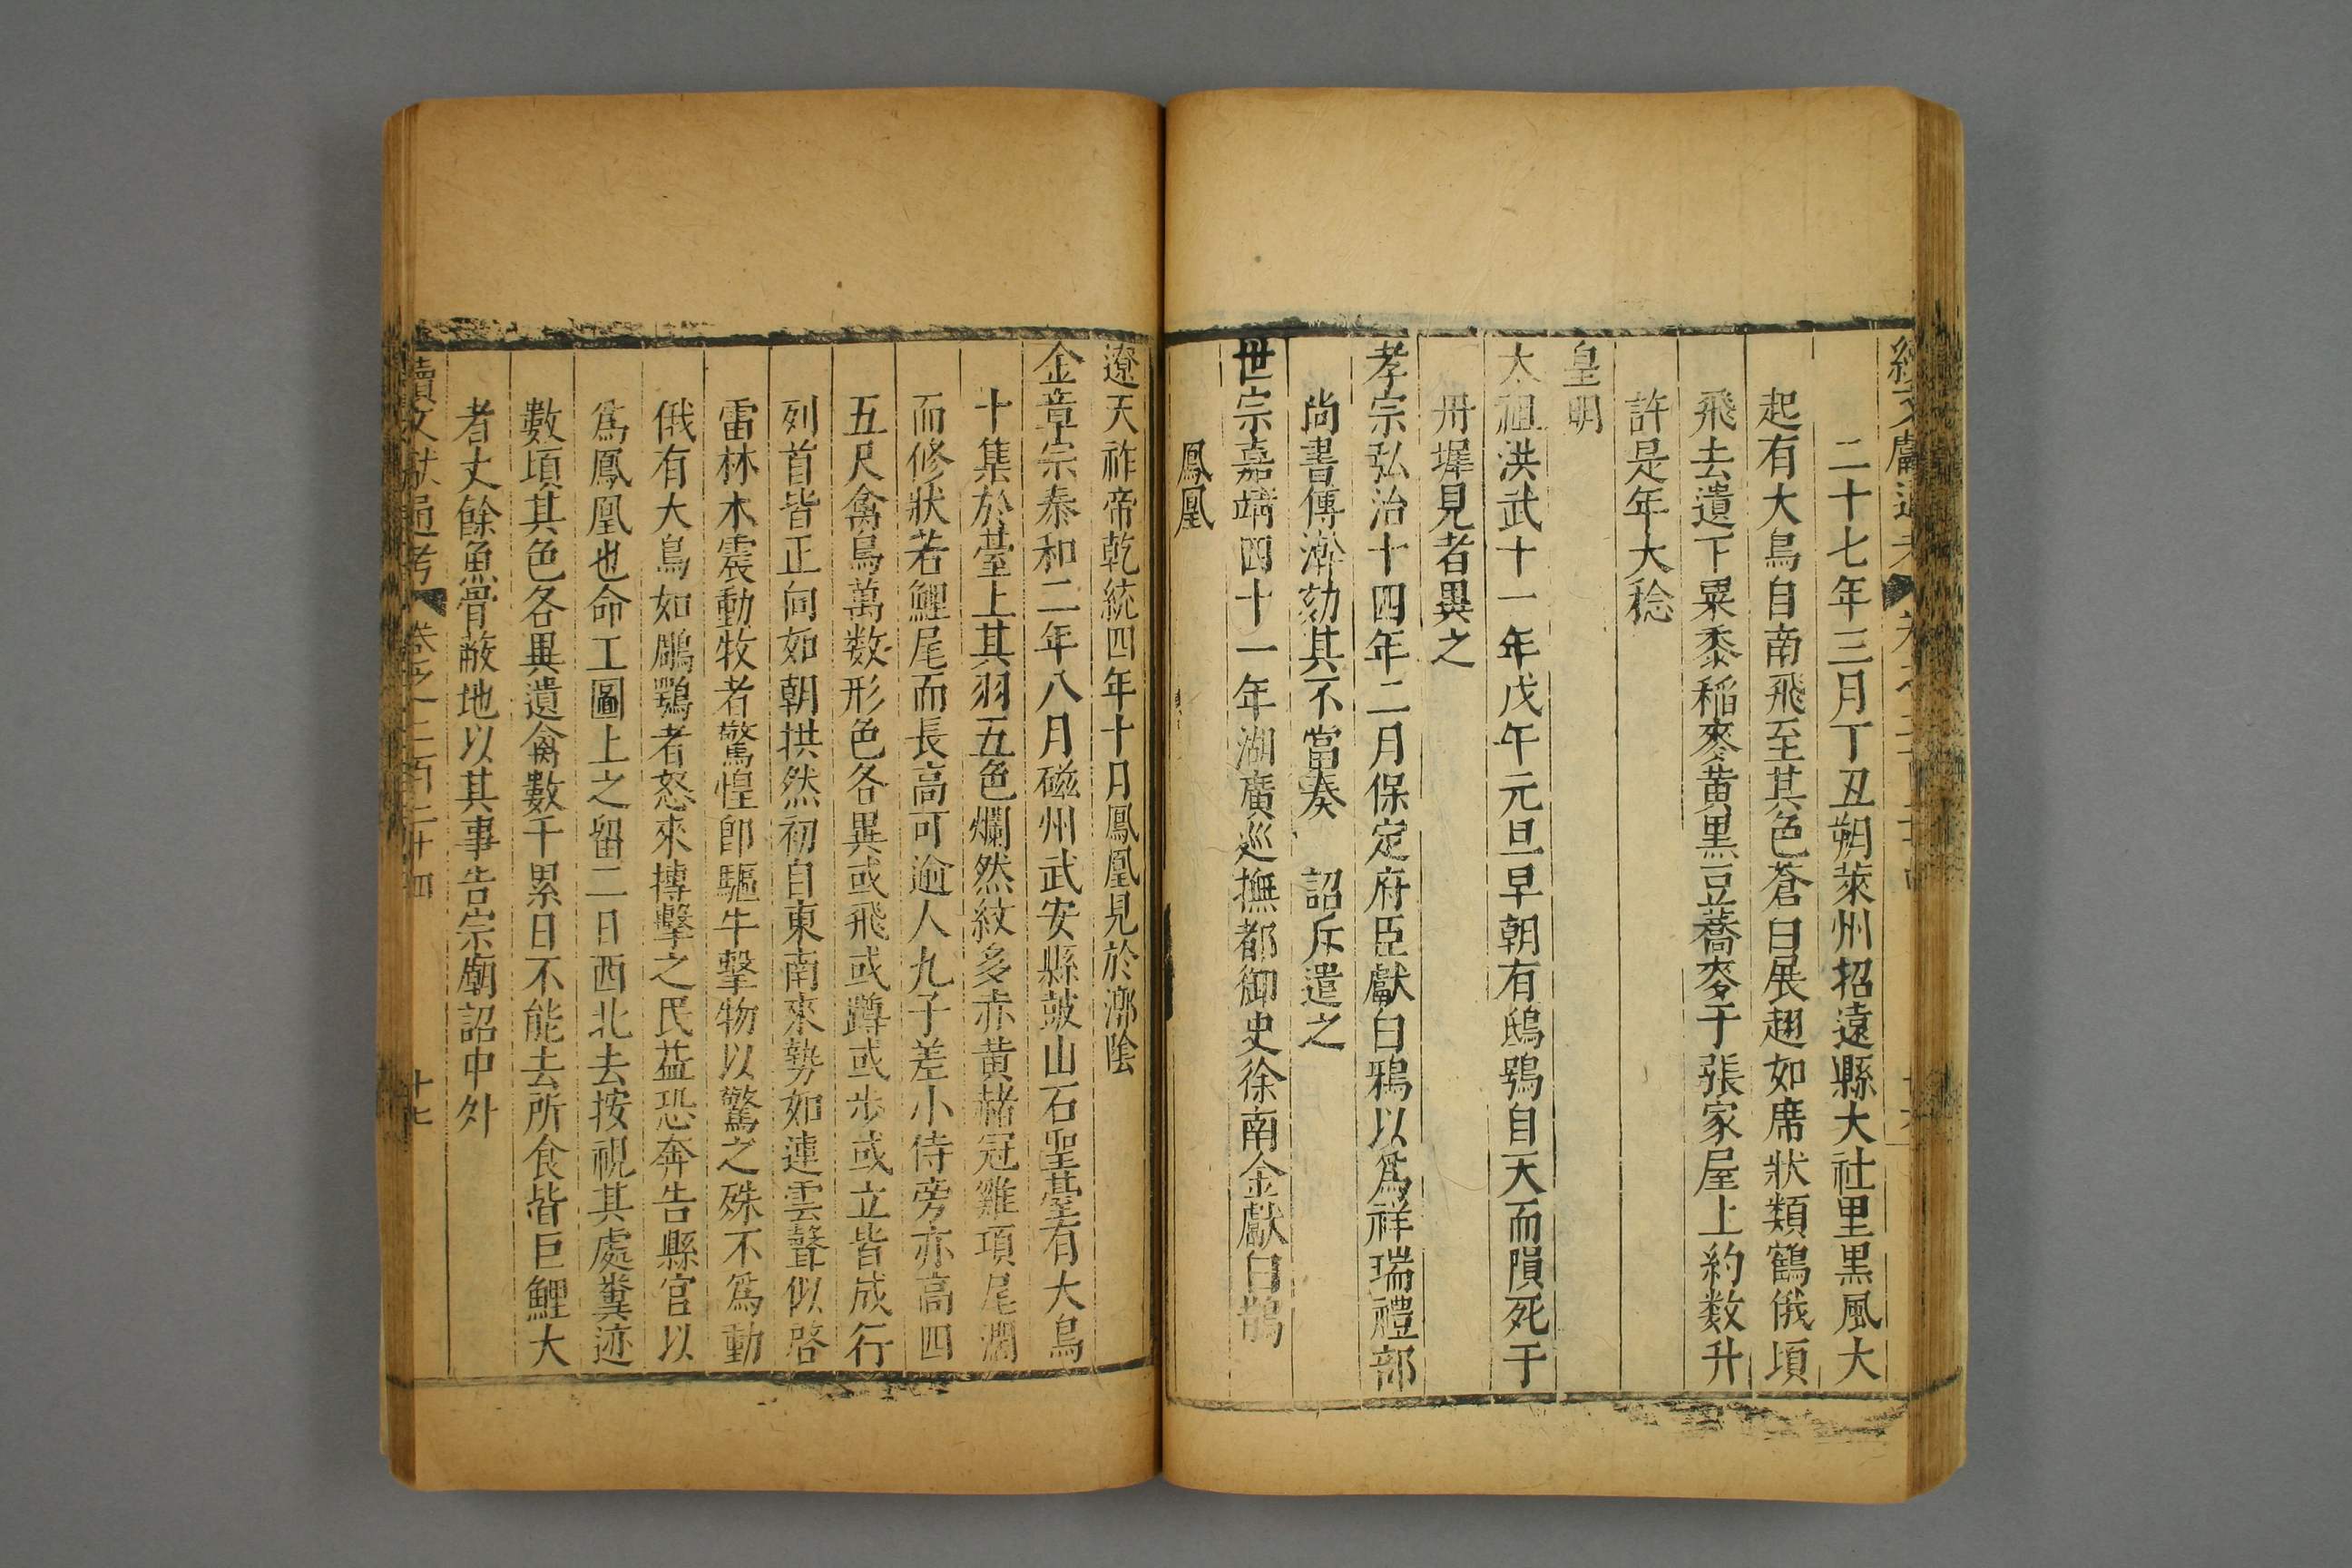 續文獻通考
二十七年三月丁丑朔萊州招遠縣大社里黑風大
起有大鳥自南飛至其色蒼白展翅如席狀類鶴俄頃
飛去遺下粟黍稻麥黃黑豆蕎麥于張家屋上約数升
許是年大稔
皇明
太祖洪武十一年戊午元旦早朝有鴟鴞自天而隕死于
丹墀見者異之
孝宗弘治十四年二月保定府臣獻白鴉以爲祥瑞禮部
尚書傅瀚劾其不當奏 詔斥遣之
世宗嘉靖四十一年湖廣巡撫都御史徐南金獻白鵲
鳳凰
遼天祚帝乾統四年十月鳳凰見於漷陰
金章宗泰和二年八月磁州武安縣鼓山石聖臺有大鳥
十集於臺上其羽五色爛然紋多赤黃赭冠雞項尾濶
而修狀若鯉尾而長高可逾人九子差小侍旁亦高四
五尺禽鳥萬数形色各異或飛或蹲或步或立皆成行
列首皆正向如朝拱然初自東南來勢如連雲聲似啓
雷林木震動牧者驚惶卽驅牛擊物以驚之殊不爲動
俄有大鳥如鵰鶚者怒來搏擊之民益恐奔告縣官以
爲鳳凰也命工圖上之留二日西北去按視其處糞迹
數頃其色各異遺禽數千累日不能去所食皆巨鯉大
者丈餘魚骨蔽地以其事告宗廟詔中外
續文獻通考 卷之二百二十四 十七